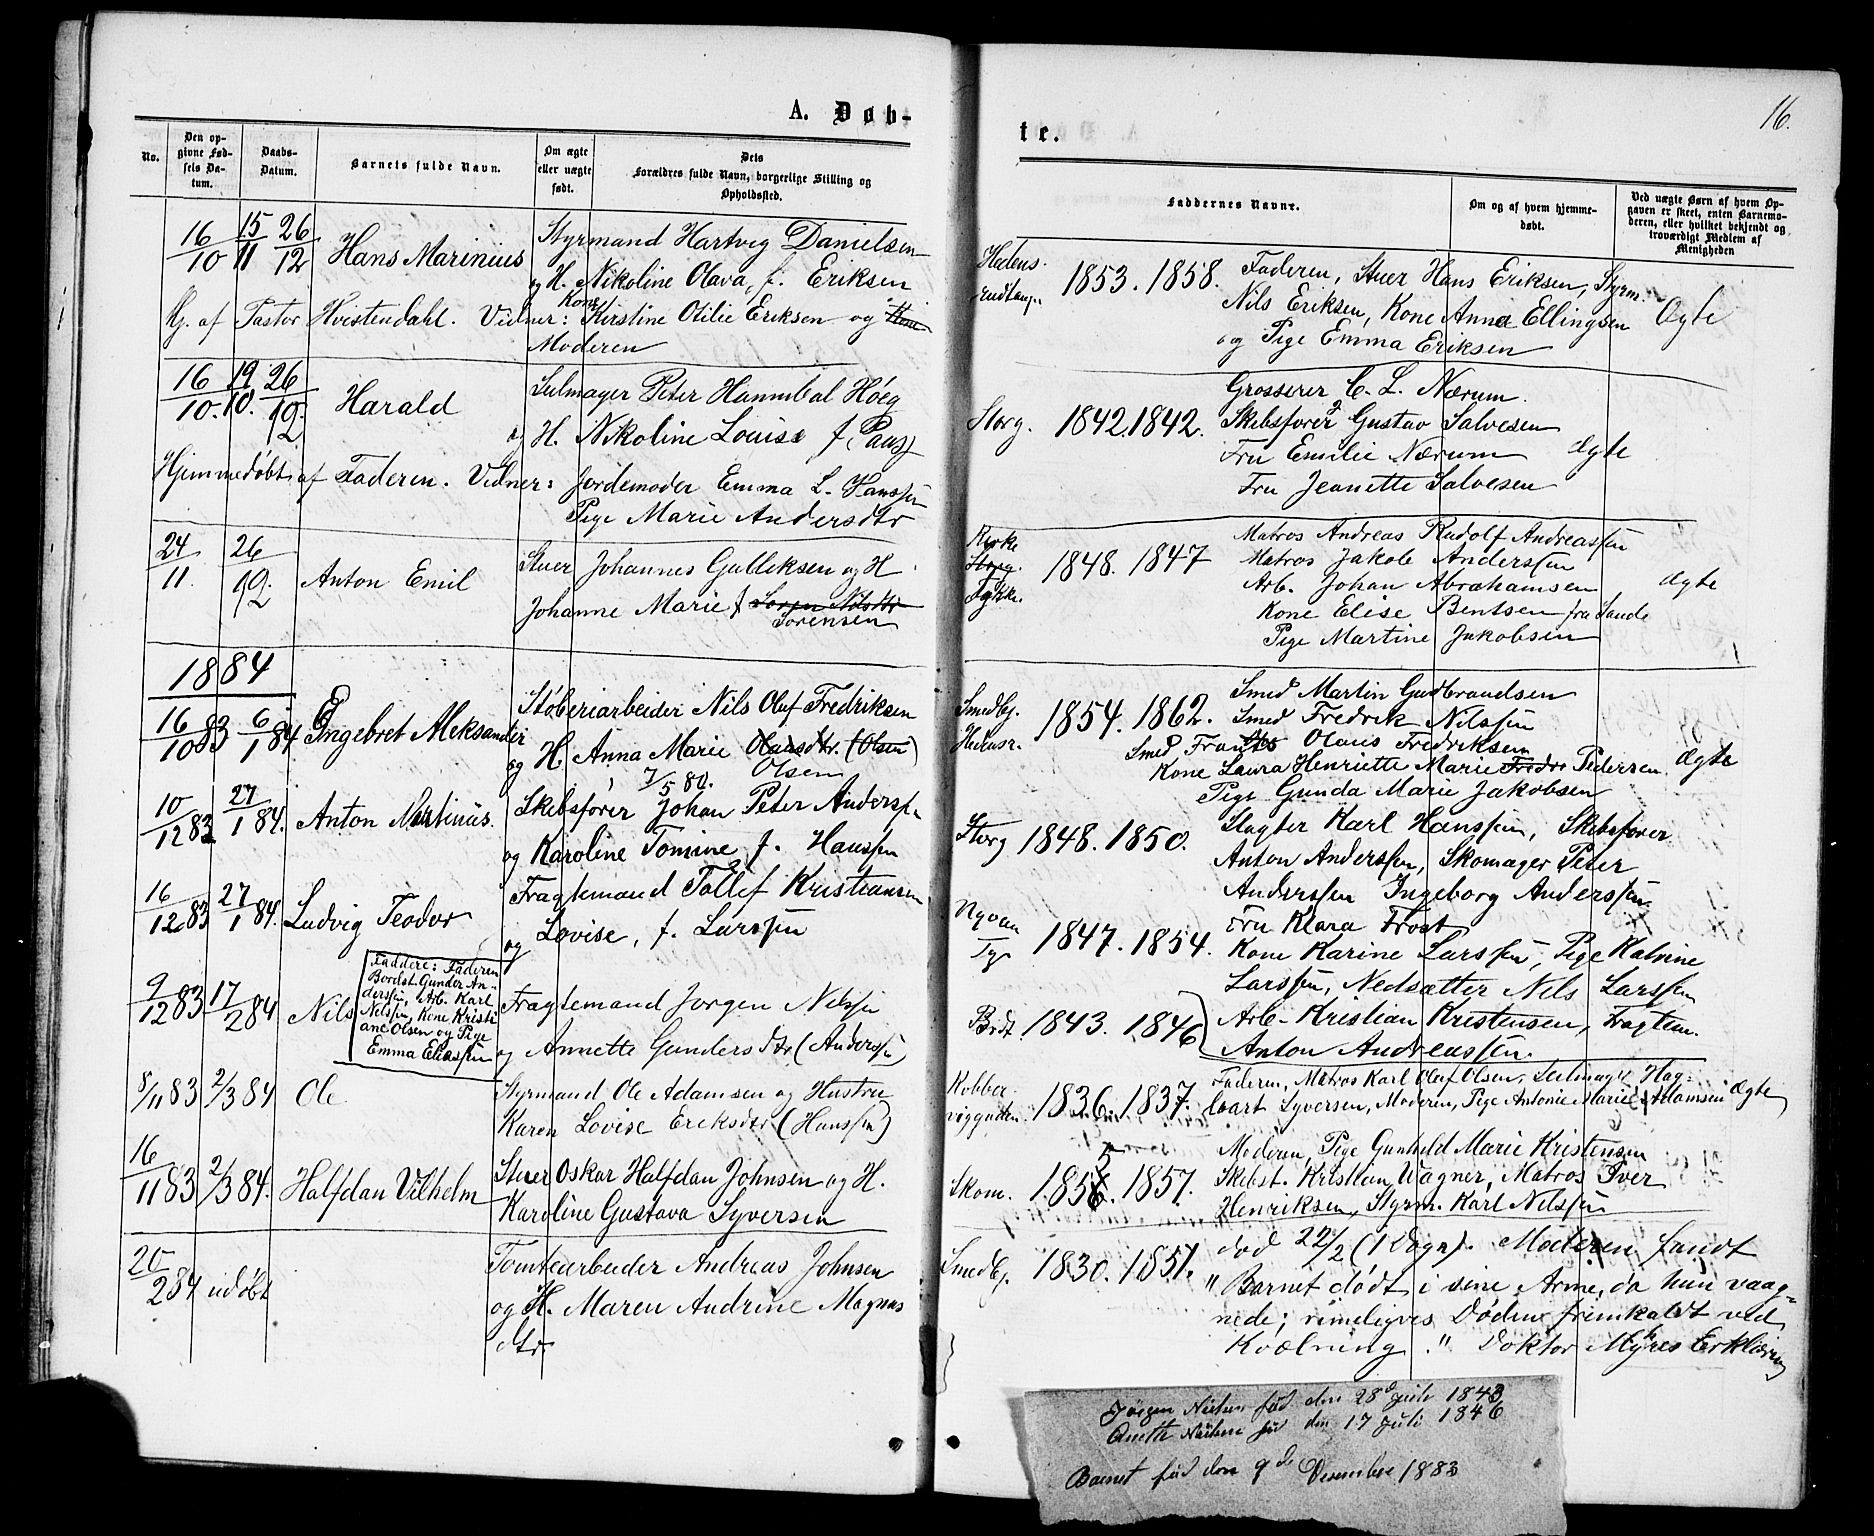 A. Døb-
No.
Den op-
givne Fød-
sels Da-
tum.
Daabs-
Datum.
Barnets fulde Navn.
Om ægte
eller uægte
født.
Dets
Forældres fulde Navn, borgerlige Stilling og
Opholdssted.
16/10 15/11 26/12 Hans Marinius Styrmand Hartvig Danielsen
og H. Nikoline Olava, f. Eriksen
Hj. af Pastor Hvistendahl. Vidner: Kone Kirstine Otilie Eriksen og Kone
Moderen
16/10. 19/10. 26/12 Harald Seilmager Peter Hannibal Höeg
og H. Nikoline Louise f. (Paus)
Hjemmedøbt af Faderen. Vidner: Jordemoder Emma L. Hanssen
Pige Marie Andersdtr
24/11. 26/12 Anton Emil Stuer Johannes Gulliksen og H.
Johanne Marie f. Soren Nilsdtr
Sorensen
1884
16/10 83 6/1 84 Engebret Aleksander Støberiarbeider Nils Oluf Fredriksen
og H. Anna Marie Olausdtr. (Olsen)
7/5 80. Olsen
10/12 83 27/1 84. Anton Martinius. Skibsfører Johan Peter Anderssen
og Karoline Tomine f. Hanssen
16/12 83 27/1 84. Ludvig Teodor Fragtemand Tollef Kristiansen
og Lovise, f. Larssen
Faddere: Faderen
Bordst. Gunder An-
derssen, Arb. Karl
Nelssen, Kone Kristi
ane Olsen og Pige
Emma Eliassen
9/12 83 17/2 84 Nils Fragtemand Jorgen Nelssen
og Annette Gundersdtr (Anderssen)
8/11 83 2/3 84 Ole Styrmand Ole Adamsen og Hustru
Karen Lovise Eriksdtr (Hanssen)
16/11 83 2/3 84. Halfdan Vilhelm Stuer Oskar Halfdan Johnsen og H.
Karoline Gustava Syversen
20/2 84 udøbt Tomtearbeider Andreas Johnsen
og H. Maren Andrine Magnus
dtr
16.
te.
Faddernes Navne.
Om og af hvem hjemme-
døbt.
Ved uægte Børn af hvem Op-
gaven er skeet, enten Barnemo-
deren, eller hvilket bekjendt og
troværdigt Medlem af
Menigheden
Hedens-
1853. 1858. Faderen, Stuer Hans Eriksen, Styrm.
Nils Eriksen, Kone Anna Ellingsen Ægte
og Pige Emma Eriksen
Storg. 1842. 1842. Grosserer C. L. Nærum.
Skibsfører Gustav Salvesen
Fru Emilie Nærum Ægte
Fru Jeanette Salvesen
Kirke
Storg.
1848. 1847 Matros Andreas Rudolf Andreassen
Matros Jakob Anderssen
Arb. Johan Abrahamsen Ægte
Kone Elise Bentsen fra Sande
Pige Martine Jakobsen
Smedbj.
Hedensr. 1854. 1862. Smed Martin Gudbrandsen
Smed Fredrik Nilssen
Smed Frants Olaus Fredriksen
Kone Laura Henriette Marie Fredr Pedersen. Ægte
Pige Gunda Marie Jakobsen
Storg 1848. 1850. Slagter Karl Hanssen, Skibsfører
Anton Anderssen, Skomager Peter
Anderssen Ingeborg Anderssen.
Fru Klara Frost
1847. 1854. Kone Karine Larssen, Pige Katrine
Larssen, Nedsætter Nils Larssen
Brdt. 1843. 1846 Arb. Kristian Kristensen, Fragtem.
Anton Andreassen.
Kobber-
viggaden. 1836. 1837. Faderen, Matros Karl Oluf Olsen, Seilmager Hag-
bart Syversen, Moderen, Pige Antonie Marie Adamsen Ægte
Skom. 1857. Moderen, Pige Gunhild Marie Kristensen
Skibst. Kristian Wagner, Matros Iver
Henriksen, Styrm. Karl Nelssen
Smedbj. 1830. 1851. død 22/2 (1 Døgn). Moderen fandt
" Barnet dødt i sine Arme, da hun vaag-
nede; rimeligvis Døden fremkaldt ved
Kvælning." Doktor Myhres Erklæring
Jörgen Nielsen föd den 28d Juli 1843
Anette Nielsen föd den 17 Juli 1846
Barnet föd den 9de Desember 1883